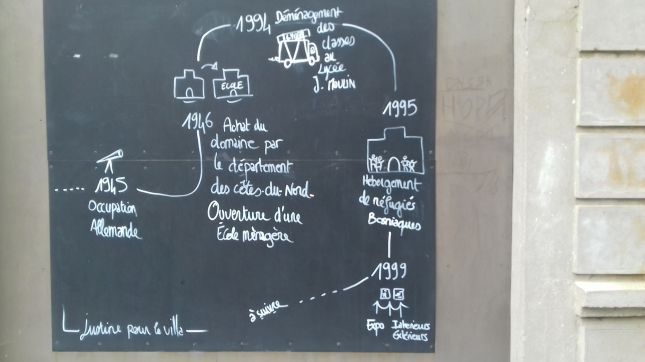 1994
Déménagement
des
classes
au
Lycée
J. MOULIN
ÉCOLE
1995
1946
Achat du
domaine par
le département
des côtes-du-Nord.
Ouverture d'une
École ménagère
1945
Occupation
Allemande
Hébergement
de réfugiés
Bosniaques
1999
à suivre
Expo
Intérieurs
Extérieurs
Justine pour la villa